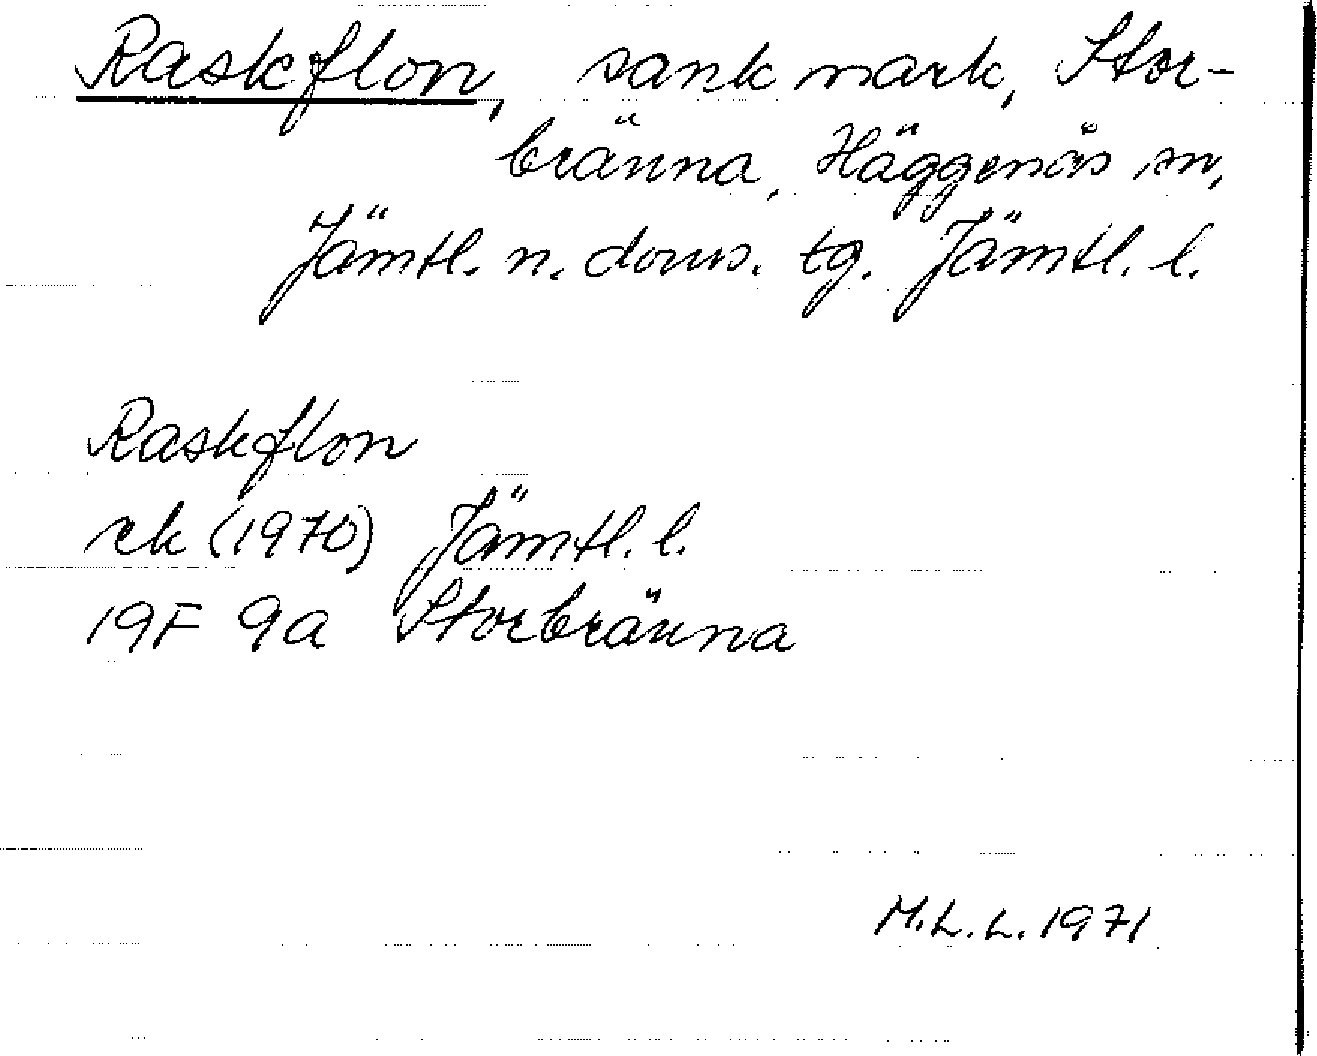 Raskflon, sank mark, Stor-
bränna, Häggenås sn,
Jämtl. n. doms. tg. Jämtl. l.
Raskflon
rek (1970) Jämtl. l.
19F 9a Storbränna
M.L.L. 1971